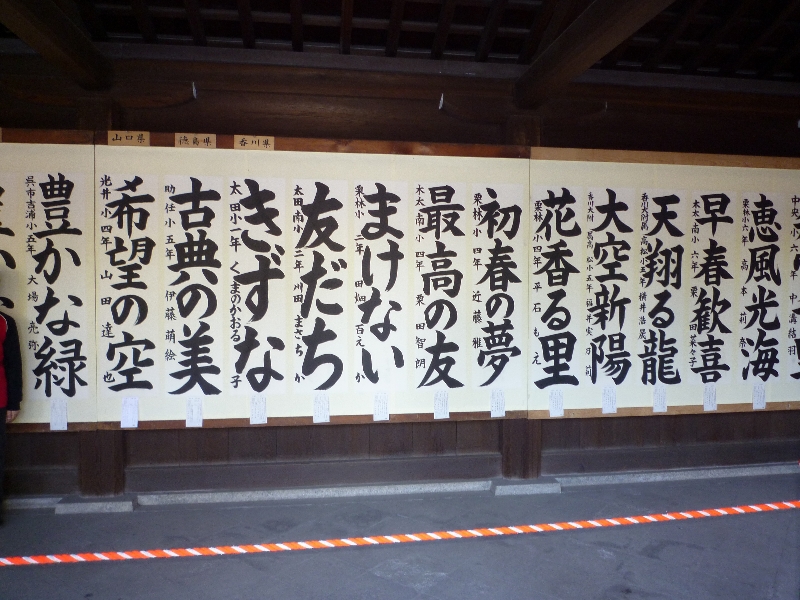 山口県
徳島県
香川県
恵風光海
栗林小六年
早春歓喜
木太南小 六年
天翔る龍
大空新陽
花香る里
栗林小四年 平石 もえ
初春の夢
栗林小 四年 近藤 雅
最高の友
木太南小 四年 栗田智朗
まけない
栗林小 二年 田畑 百えか
友だち
太田南小 二年 川田 まさちか
きずな
太田小一年 くまのかおる子
古典の美
助任小五年 伊藤 萌絵
希望の空
光井小四年 山田 達也
豊かな緑
呉市吉浦小五年 大場 亮弥